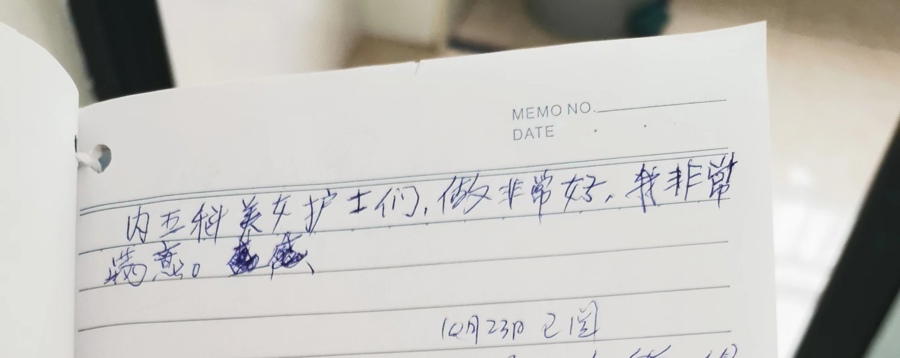 MEMO NO.
DATE
内五科美女护士们,做非常好,我非常
满意。
10月23日